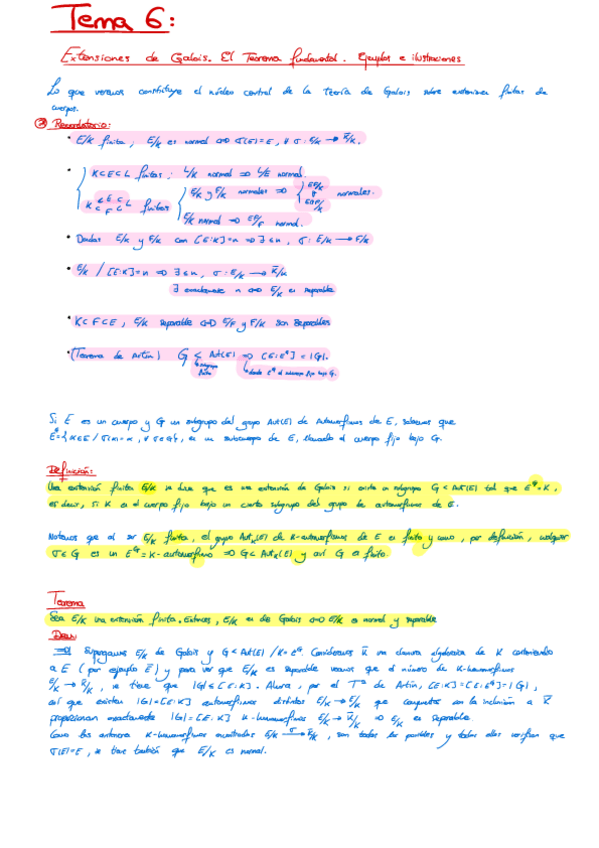 Tema 6:
Extensiones de Galois. El Teorema fundamental. Ejemplos e ilustraciones
Lo que veremos constituye el núcleo central de la Teoría de Galois sobre extensiones finitas de
cuerpos.
Recordatorio:
• E/K finita; E/K es normal ⇔ σ(E)=E, ∀ σ: E/K → K̄/K.
• K⊂E⊂L finitas; L/K normal ⇒ L/E normal.
K ⊂ E ⊂ L
⊂ F ⊂ finitas
E/K y F/K normales ⇒ EF/K y E∩F/K normales.
E/K normal ⇒ EF/F normal.
• Dadas E/K y F/K con [E:K]=n ⇒ ∃ ≤n, σ: E/K → F/K
• E/K / [E:K]=n ⇒ ∃ ≤n, σ: E/K → K̄/K
∃ exactamente n ⇔ E/K es separable
• K⊂F⊂E, E/K separable ⇔ E/F y F/K son separables
• (Teorema de Artin) G < Aut(E) ⇒ [E:E^G] = |G|.
subgrupo
finito
donde E^G el cuerpo fijo bajo G.
Si E es un cuerpo y G un subgrupo del grupo Aut(E) de automorfismos de E, sabemos que
E^G={α∈E / σ(α)=α, ∀ σ∈G}, es un subcuerpo de E, llamado el cuerpo fijo bajo G.
Definición:
Una extensión finita E/K se dice que es una extensión de Galois si existe un subgrupo G < Aut(E) tal que E^G=K,
es decir, si K es el cuerpo fijo bajo un cierto subgrupo del grupo de automorfismos de E.
Notemos que al ser E/K finita, el grupo Aut_K(E) de K-automorfismos de E es finito y como, por definición, cualquier
σ∈G es un E^G=K-automorfismo ⇒ G<Aut_K(E) y así G es finito.
Teorema
Sea E/K una extensión finita. Entonces, E/K es de Galois ⇔ E/K es normal y separable
Dem
⇒| Supongamos E/K de Galois y G<Aut(E) / K=E^G. Consideramos K̄ una clausura algebraica de K conteniendo
a E (por ejemplo Ē) y para ver que E/K es separable veamos que el número de K-homomorfismos
E/K → K̄/K, se tiene que |G| ≤ [E:K]. Ahora, por el Tª de Artin, [E:K]=[E:E^G]=|G|,
así que existen |G|=[E:K] automorfismos distintos E/K → E/K que conjuntos con la inclusión a K̄
proporcionan exactamente |G|=[E:K] K-homomorfismos E/K → K̄/K ⇒ E/K es separable.
Como los anteriores K-homomorfismos E/K →σ K̄/K, son todos los posibles y todos ellos verifican que
σ(E)=E, se tiene también que E/K es normal.